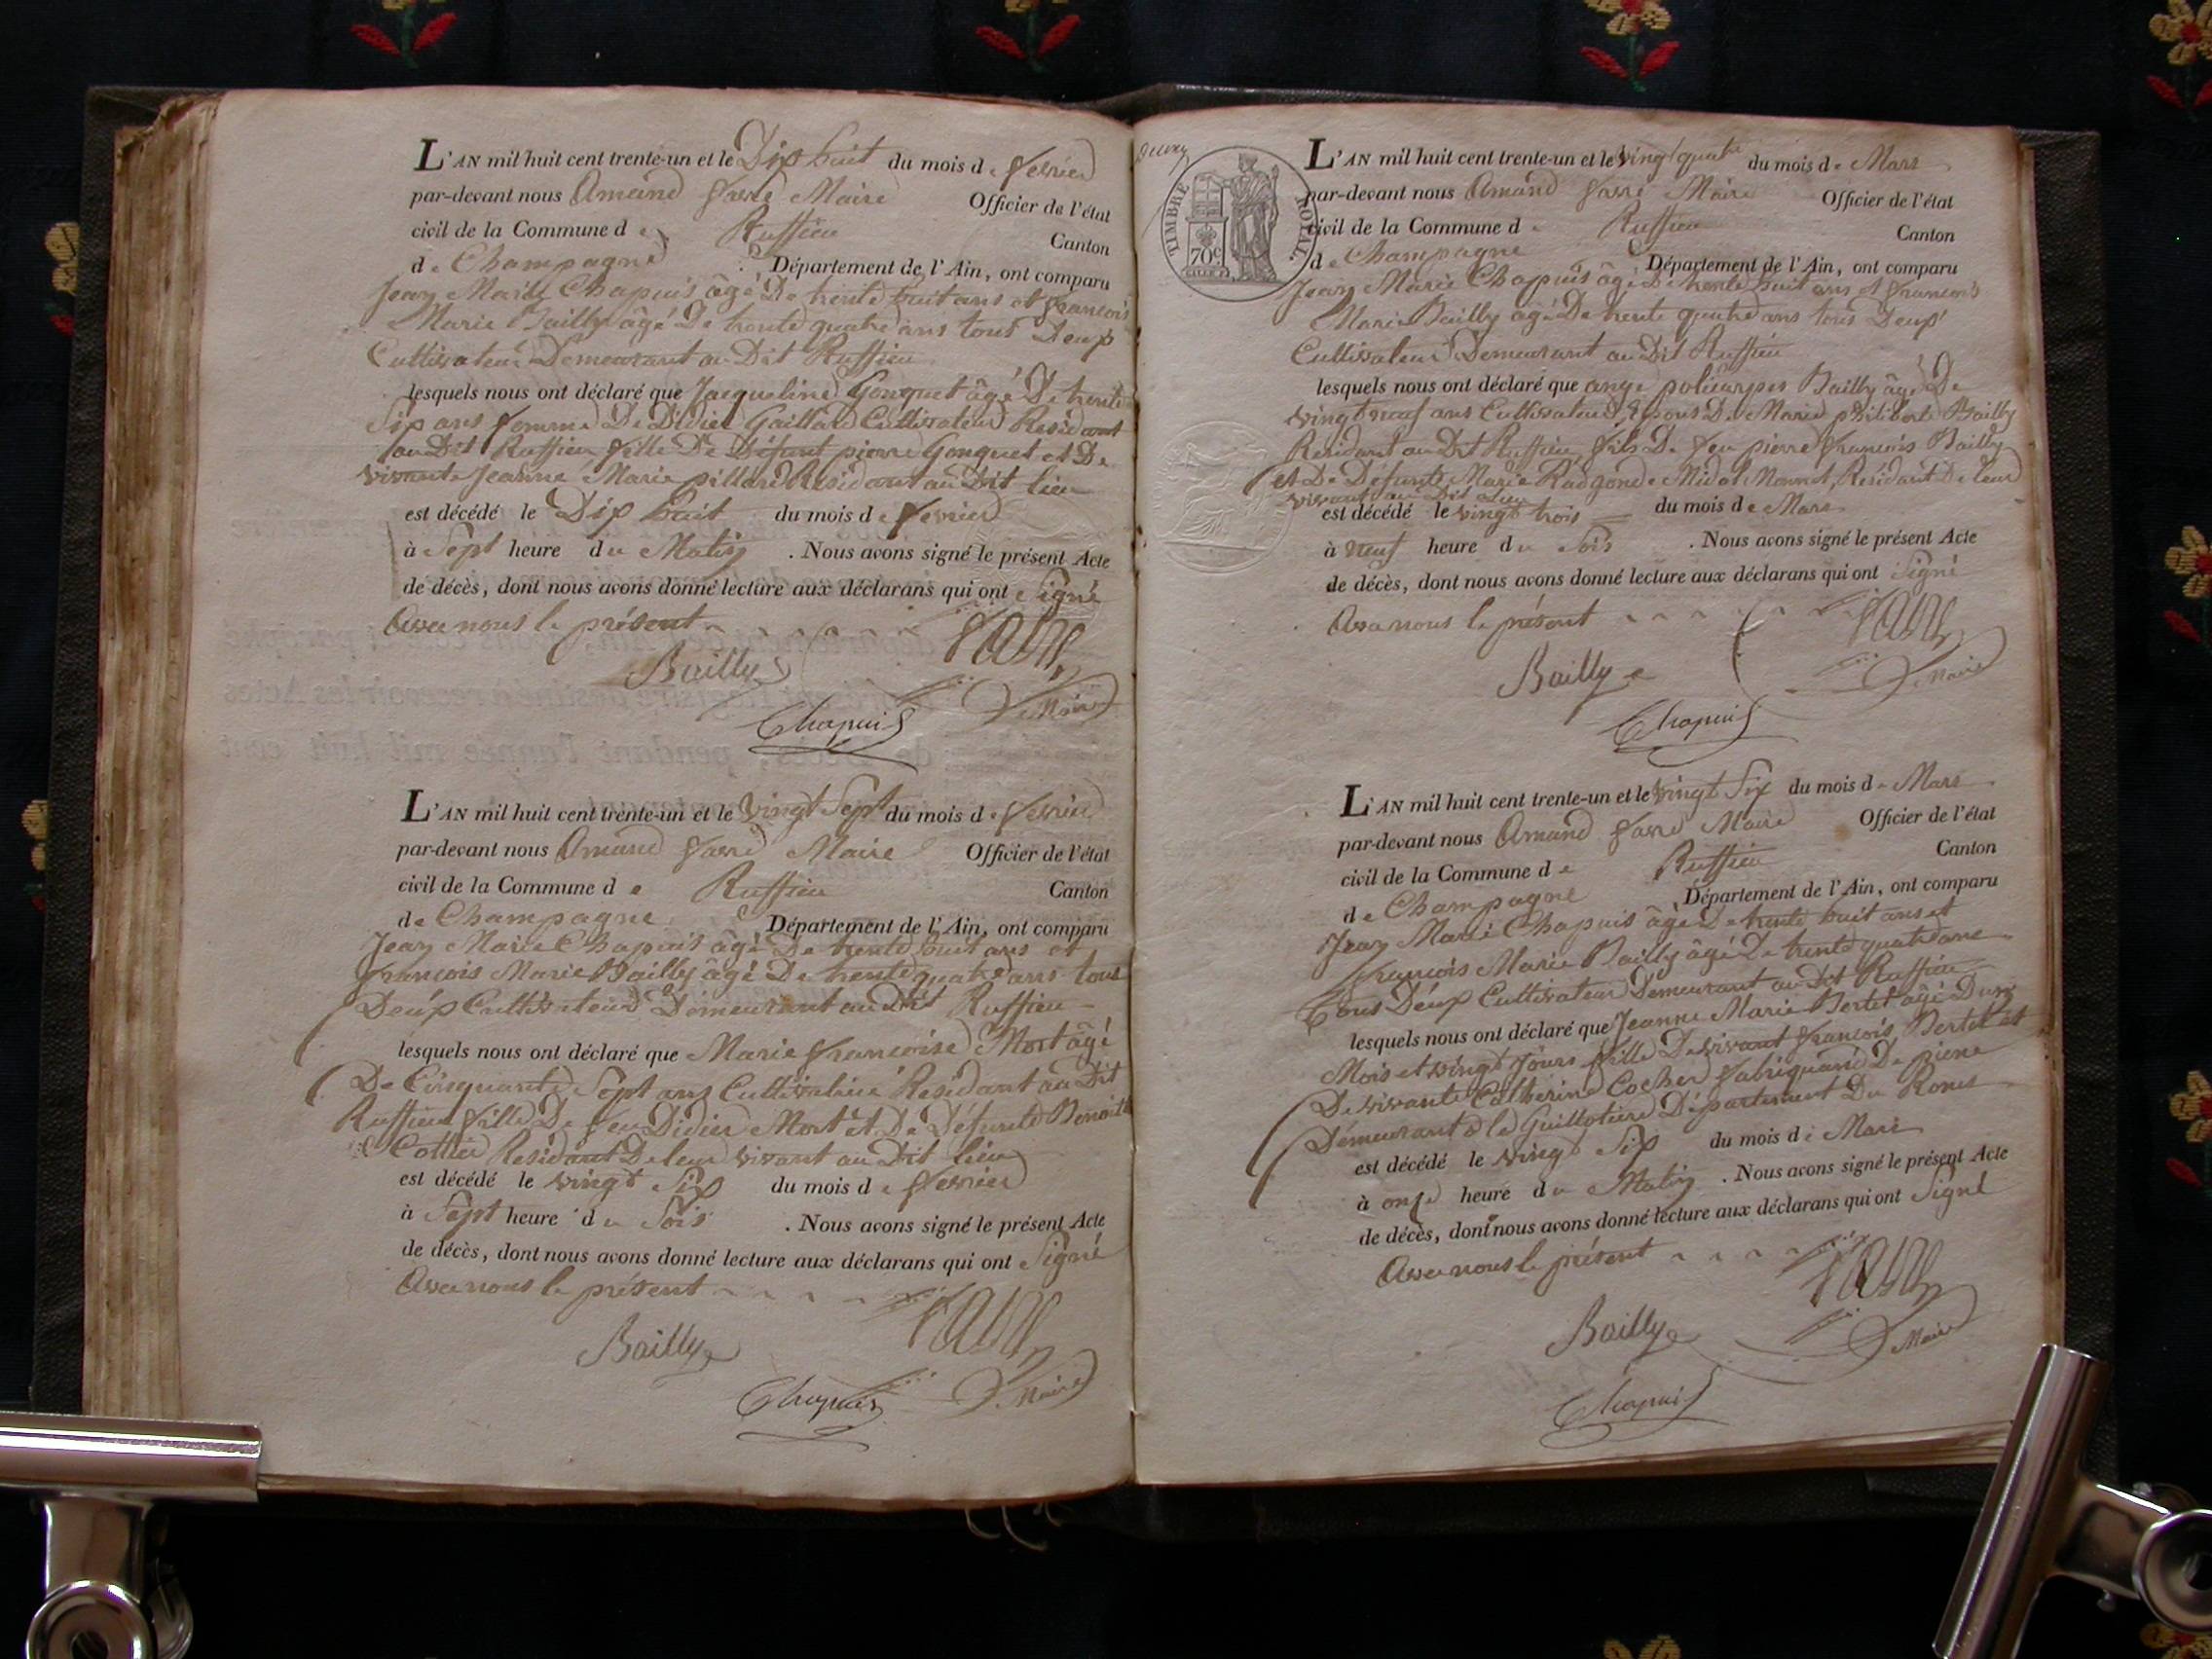 L'AN mil huit cent trente-un et le Dix huit du mois de fevrier
par-devant nous Amand favre Maire Officier de l'état
civil de la Commune de Ruffieu Canton
de Champagne Département de l'Ain, ont comparu
Jean Marie Chapuis âgé De trente huit ans et francois
Marie Bailly âgé De trente quatre ans tous Deux
Cultivateur Demeurant au Dit Ruffieu
lesquels nous ont déclaré que Jacqueline Gonguet âgé De trente
Six ans femme De Didier Gaillard Cultivateur Residant
au Dit Ruffieu fille De Défunt pierre Gonguet et De
vivante Jeanne Marie pillard Residant au Dit lieu
est décédé le Dix huit du mois de fevrier
à Sept heure du Matin . Nous avons signé le présent Acte
de décès, dont nous avons donné lecture aux déclarans qui ont Signé
Avec nous le présent
favre
Bailly
Maire
Chapuis
L'AN mil huit cent trente-un et le vingt Sept du mois de fevrier
par-devant nous Amand favre Maire Officier de l'état
civil de la Commune de Ruffieu Canton
de Champagne Département de l'Ain, ont comparu
Jean Marie Chapuis âgé De trente huit ans et
francois Marie Bailly âgé De trente quatre ans tous
Deux Cultivateur Demeurant au Dit Ruffieu
lesquels nous ont déclaré que Marie francoise Mort âgé
De Cinquante Sept ans Cultivatrice Residant au Dit
Ruffieu fille De feu Didier Mort et De Défunte Benoite
Cottier Residant De leur vivant au Dit lieu
est décédé le vingt Six du mois de fevrier
à Sept heure du Soir . Nous avons signé le présent Acte
de décès, dont nous avons donné lecture aux déclarans qui ont Signé
Avec nous le présent
favre
Bailly
Maire
Chapuis
TIMBRE ROYAL
70c
L'AN mil huit cent trente-un et le vingt quatre du mois de Mars
par-devant nous Amand favre Maire Officier de l'état
civil de la Commune de Ruffieu Canton
de Champagne Département de l'Ain, ont comparu
Jean Marie Chapuis âgé De trente huit ans et francois
Marie Bailly âgé De trente quatre ans tous Deux
Cultivateur Demeurant au Dit Ruffieu
lesquels nous ont déclaré que ange policarpes Bailly âgé De
vingt neuf ans Cultivateur Epous De Marie philiberte Bailly
Residant au Dit Ruffieu fils De feu pierre francois Bailly
et De Défunte Marie Radgonde Midol Monnet, Residant De leur
vivant au Dit Lieu
est décédé le vingt trois du mois de Mars
à neuf heure du Soir . Nous avons signé le présent Acte
de décès, dont nous avons donné lecture aux déclarans qui ont Signé
Avec nous le présent
favre
Bailly
Maire
Chapuis
L'AN mil huit cent trente-un et le vingt Six du mois de Mars
par-devant nous Amand favre Maire Officier de l'état
civil de la Commune de Ruffieu Canton
de Champagne Département de l'Ain, ont comparu
Jean Marie Chapuis âgé De trente huit ans et
francois Marie Bailly âgé De trente quatre ans
tous Deux Cultivateur Demeurant au Dit Ruffieu
lesquels nous ont déclaré que Jeanne Marie Bertet âgé D'un
Mois et vingt Jours fille De vivant francois Bertet et
De vivante Catherine Cocher De
Demeurant a la Guillotiere Département Du Rones
est décédé le vingt Six du mois de Mars
à onze heure du Matin . Nous avons signé le présent Acte
de décès, dont nous avons donné lecture aux déclarans qui ont Signé
Avec nous le présent
favre
Bailly
Maire
Chapuis